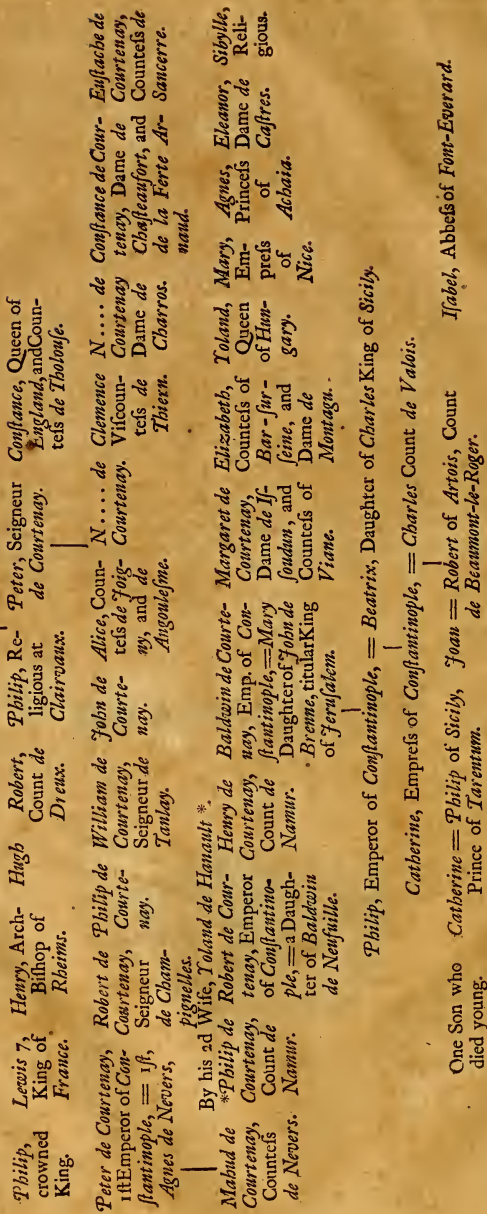 Philip,
crowned
King.
Lewis 7,
King of
France.
Henry, Arch-
Biſhop of
Rheims.
Hugh
Robert,
Count de
Dreux.
Philip, Re-
ligious at
Clairvaux.
Peter, Seigneur
de Courtenay.
Conſtance, Queen of
England, andCoun-
teſs de Tholouſe.
Peter de Courtenay,
1ſtEmperor of Con-
ſtantinople, = 1ſt,
Agnes de Nevers,
Robert de
Courtenay,
Seigneur
de Cham-
pignelles.
Philip de
Courte-
nay.
William de
Courtenay,
Seigneur de
Tanlay.
John de
Courte-
nay.
Alice, Coun-
teſs de Joig-
ny, and de
Angouleſme.
N.... de
Courtenay.
Clemence
Viſcoun-
teſs de
Thiern.
N.... de
Courtenay
Dame de
Charros.
Conſtance de Cour-
tenay, Dame de
Chaſteaufort, and
de la Ferte Ar-
naud.
Euſtache de
Courtenay,
Counteſs de
Sancerre.
By his 2d Wife, Yoland de Hanault *.
Mahud de
Courtenay,
Counteſs
de Nevers.
*Philip de
Courtenay,
Count de
Namur.
Robert de Cour-
tenay, Emperor
of Conſtantino-
ple, = a Daugh-
ter of Baldwin
de Neufuille.
Henry de
Courtenay,
Count de
Namur.
Baldwin de Courte-
nay, Emp. of Con-
ſtantinople,=Mary
Daughter of John de
Brenne, titularKing
of Jeruſalem.
Margaret de
Courtenay,
Dame de Iſ-
ſoudun, and
Counteſs of
Viane.
Elizabeth,
Counteſs of
Bar-ſur-
ſeine, and
Dame de
Montagu.
Yoland,
Queen
of Hun-
gary.
Mary,
Em-
preſs
of
Nice.
Agnes,
Princeſs
of
Achaia.
Eleanor,
Dame de
Caſtres.
Sibylle,
Reli-
gious.
Philip, Emperor of Conſtantinople, = Beatrix, Daughter of Charles King of Sicily.
Catherine, Empreſs of Conſtantinople, = Charles Count de Valois.
One Son who
died young.
Catherine = Philip of Sicily,
Prince of Tarentum.
Joan = Robert of Artois, Count
de Beaumont-le-Roger.
Iſabel, Abbeſs of Font-Everard.